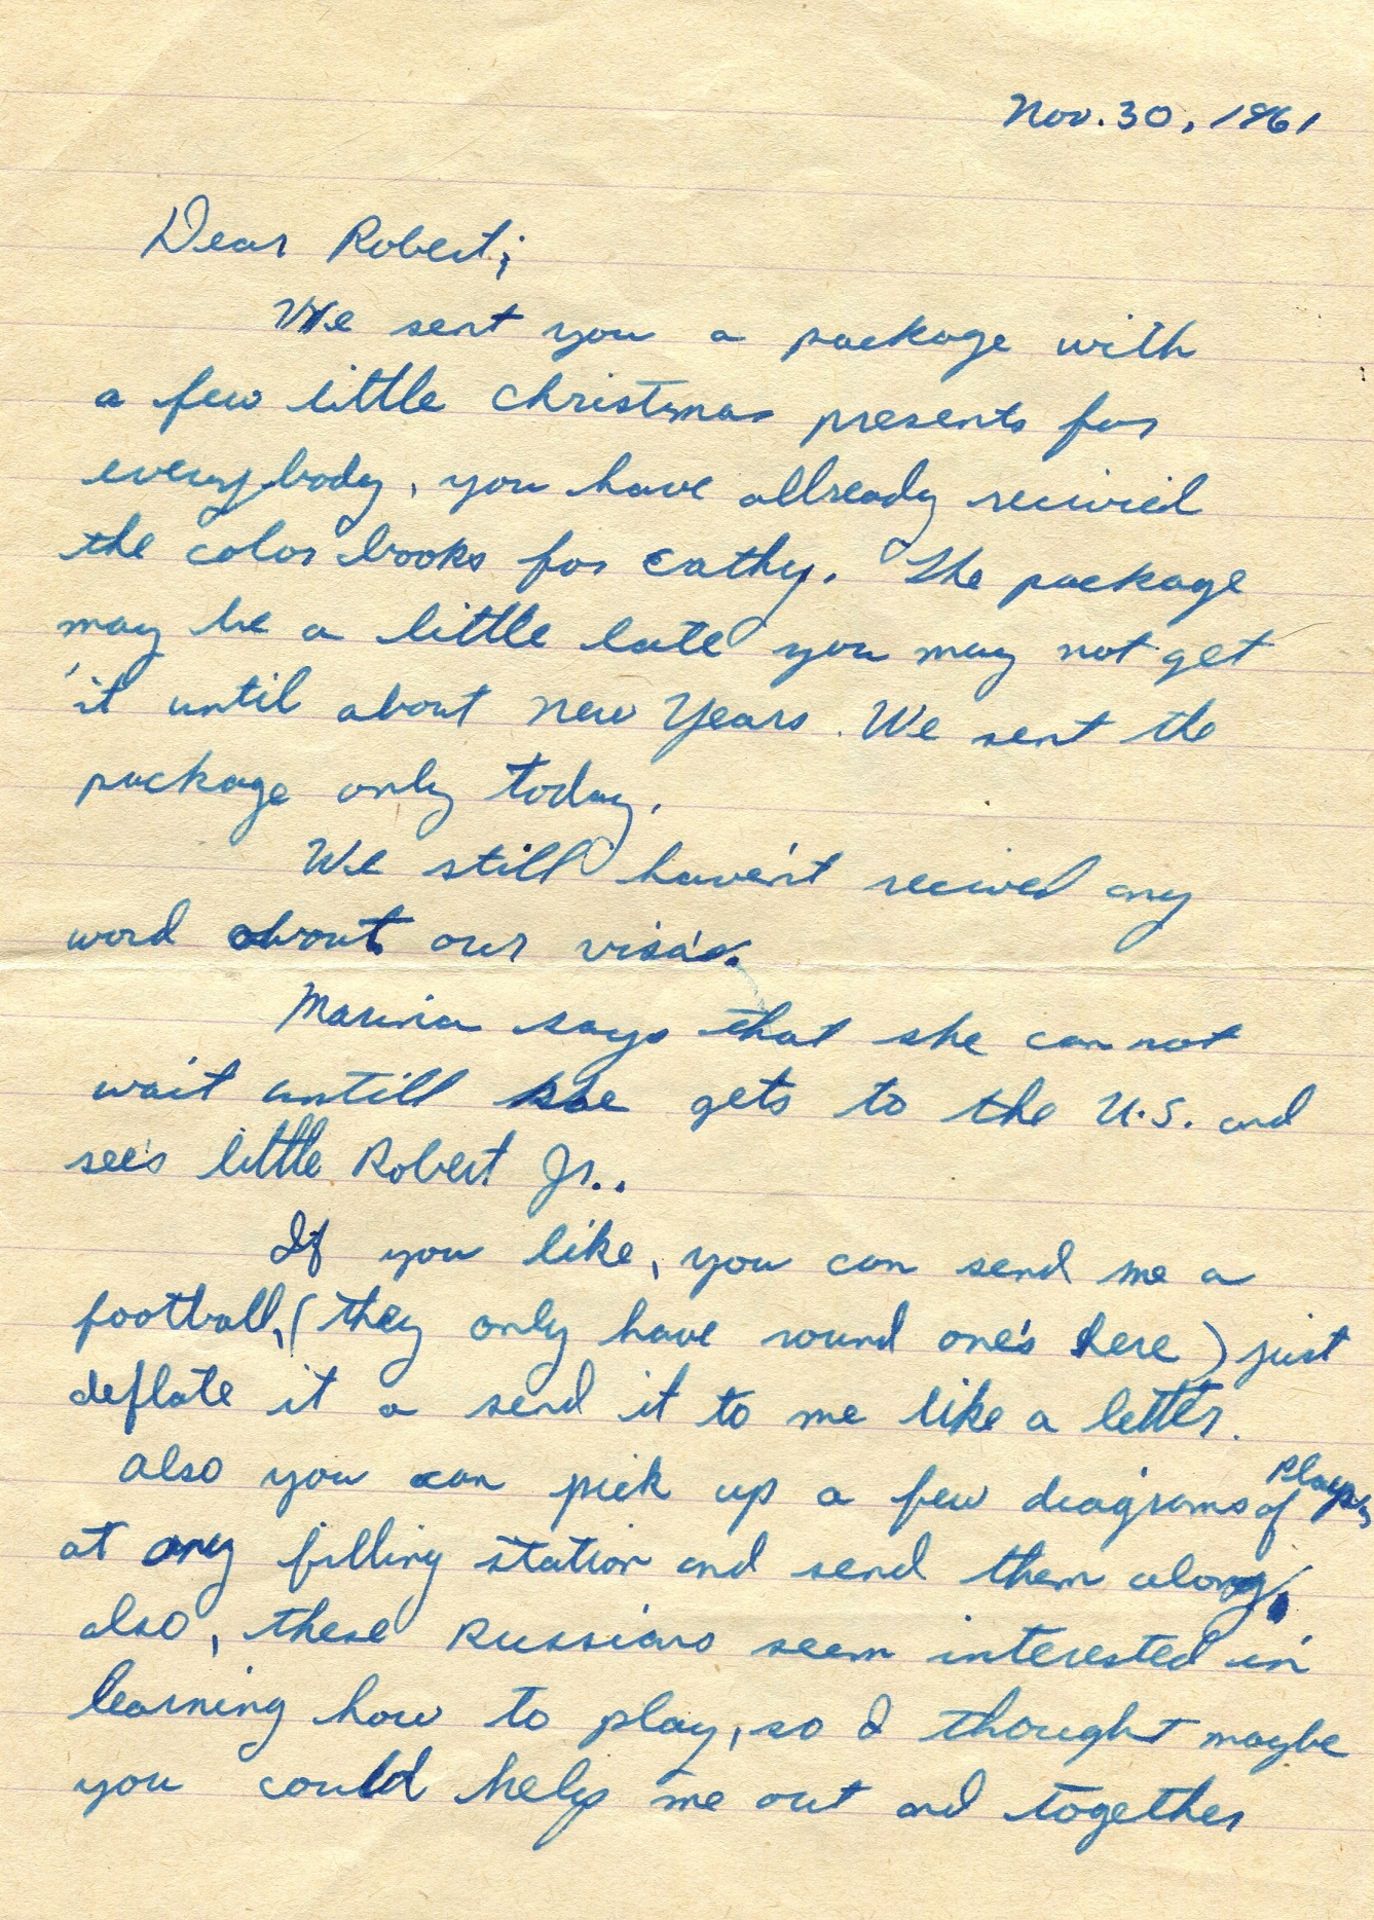 Nov. 30, 1961
Dear Robert;
We sent you a package with
a few little Christmas presents for
everybody, you have allready recivied
the color books for Cathy. The package
may be a little late you may not get
it until about New Years. We sent the
package only today.
We still haven't recived any
word about our visa's.
Marina says that she can not
wait untill she gets to the U.S. and
sees little Robert Jr..
If you like, you can send me a
football, (they only have round one's here) just
deflate it a send it to me like a letter.
Also you can pick up a few diagrams of plays,
at any filling station and send them along,
also, these Russians seem interested in
learning how to play, so I thought maybe
you could help me out and together